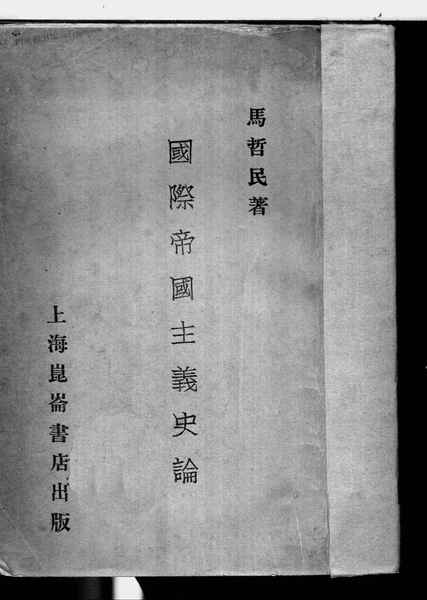 馬哲民著
國際帝國主義史論
上海崑崙書店出版